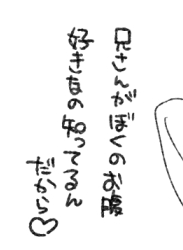 兄さんがぼくのお腹
好きなの知ってるん
だから♡